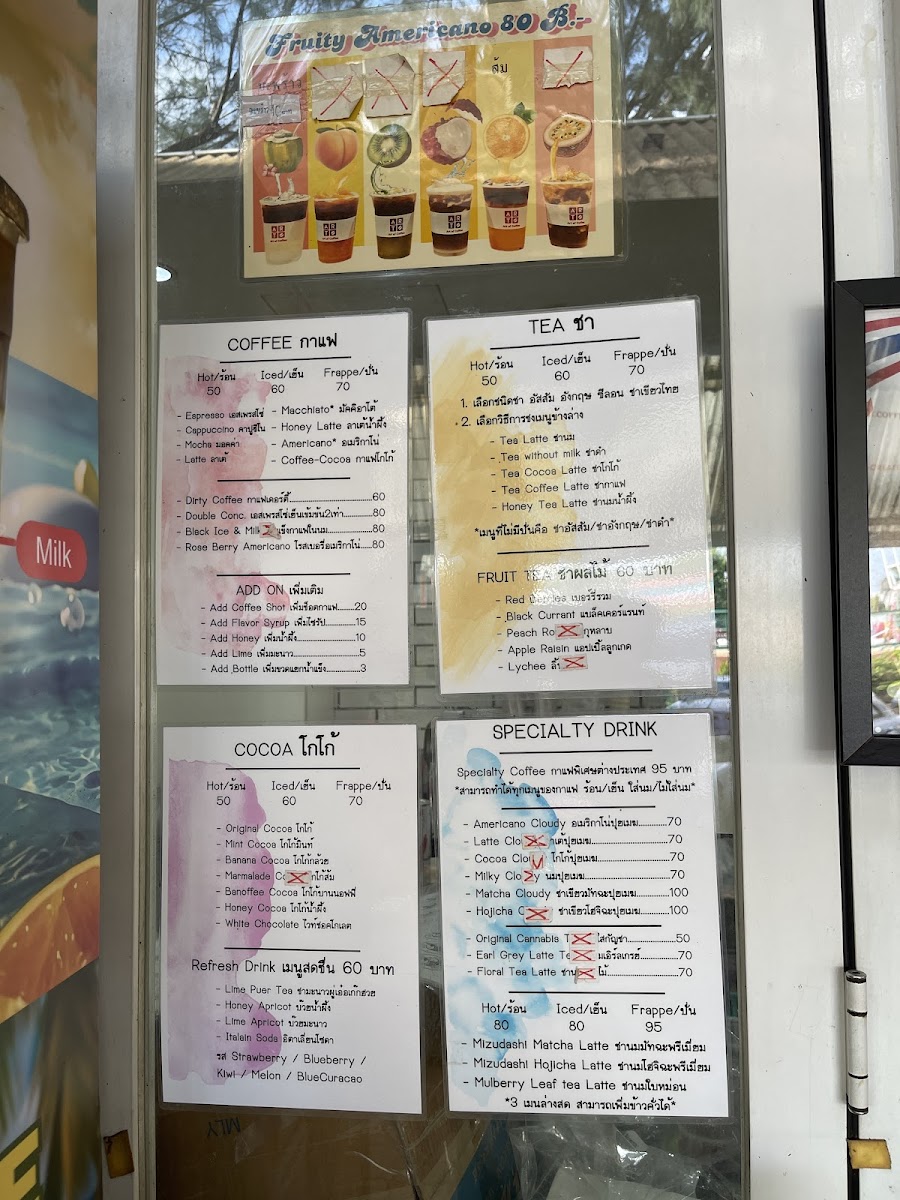 Fruity Americano 80 B.-
มะพร้าว
ส้ม
COFFEE กาแฟ
Hot/ร้อน Iced/เย็น Frappe/ปั่น
50 60 70
- Espresso เอสเพรสโซ่
- Cappuccino คาปูชิโน
- Mocha มอคค่า
- Latte ลาเต้
- Macchiato* มัคคิอาโต้
- Honey Latte ลาเต้น้ำผึ้ง
- Americano* อเมริกาโน่
- Coffee-Cocoa กาแฟโกโก้
- Dirty Coffee กาแฟเดอร์ตี้......60
- Double Conc. เอสเพรสโซ่เย็นเข้มข้น2เท่า......80
- Black Ice & Milk แข็งกาแฟในนม......80
- Rose Berry Americano โรสเบอรี่อเมริกาโน่......80
ADD ON เพิ่มเติม
- Add Coffee Shot เพิ่มช็อตกาแฟ......20
- Add Flavor Syrup เพิ่มไซรัป......15
- Add Honey เพิ่มน้ำผึ้ง......10
- Add Lime เพิ่มมะนาว......5
- Add Bottle เพิ่มขวดแยกน้ำแข็ง......3
TEA ชา
Hot/ร้อน Iced/เย็น Frappe/ปั่น
50 60 70
1. เลือกชนิดชา อัสสัม อังกฤษ ซีลอน ชาเขียวไทย
2. เลือกวิธีการชงเมนูข้างล่าง
- Tea Latte ชานม
- Tea without milk ชาดำ
- Tea Cocoa Latte ชาโกโก้
- Tea Coffee Latte ชากาแฟ
- Honey Tea Latte ชานมน้ำผึ้ง
*เมนูที่ไม่มีปั่นคือ ชาอัสสัม/ชาอังกฤษ/ชาดำ*
FRUIT TEA ชาผลไม้ 60 บาท
- Red Berries เบอร์รี่รวม
- Black Currant แบล็คเคอร์แรนท์
- Peach Ro กุหลาบ
- Apple Raisin แอปเปิ้ลลูกเกด
- Lychee ลิ้
COCOA โกโก้
Hot/ร้อน Iced/เย็น Frappe/ปั่น
50 60 70
- Original Cocoa โกโก้
- Mint Cocoa โกโก้มินท์
- Banana Cocoa โกโก้กล้วย
- Marmalade Co โกโก้ส้ม
- Banoffee Cocoa โกโก้บานนอฟฟี่
- Honey Cocoa โกโก้น้ำผึ้ง
- White Chocolate ไวท์ช็อคโกเลต
Refresh Drink เมนูสดชื่น 60 บาท
- Lime Puer Tea ชามะนาวผู่เอ๋อเก๊กฮวย
- Honey Apricot บ๊วยน้ำผึ้ง
- Lime Apricot บ๊วยมะนาว
- Italain Soda อิตาเลี่ยนโซดา
รส Strawberry / Blueberry /
Kiwi / Melon / BlueCuracao
SPECIALTY DRINK
Specialty Coffee กาแฟพิเศษต่างประเทศ 95 บาท
*สามารถทำได้ทุกเมนูของกาแฟ ร้อน/เย็น ใส่นม/ไม่ใส่นม*
- Americano Cloudy อเมริกาโน่ปุยเมฆ......70
- Latte Clo าเต้ปุยเมฆ......70
- Cocoa Clou โกโก้ปุยเมฆ......70
- Milky Clo นมปุยเมฆ......70
- Matcha Cloudy ชาเขียวมัทฉะปุยเมฆ......100
- Hojicha C ชาเขียวโฮจิฉะปุยเมฆ......100
- Original Cannabis T ใส่กัญชา......50
- Earl Grey Latte Te มเอิร์ลเกรย์......70
- Floral Tea Latte ชาน ไม้......70
Hot/ร้อน Iced/เย็น Frappe/ปั่น
80 80 95
- Mizudashi Matcha Latte ชานมมัทฉะพรีเมี่ยม
- Mizudashi Hojicha Latte ชานมโฮจิฉะพรีเมี่ยม
- Mulberry Leaf tea Latte ชานมใบหม่อน
*3 เมนูล่างสุด สามารถเพิ่มข้าวคั่วได้*
Milk
MLY